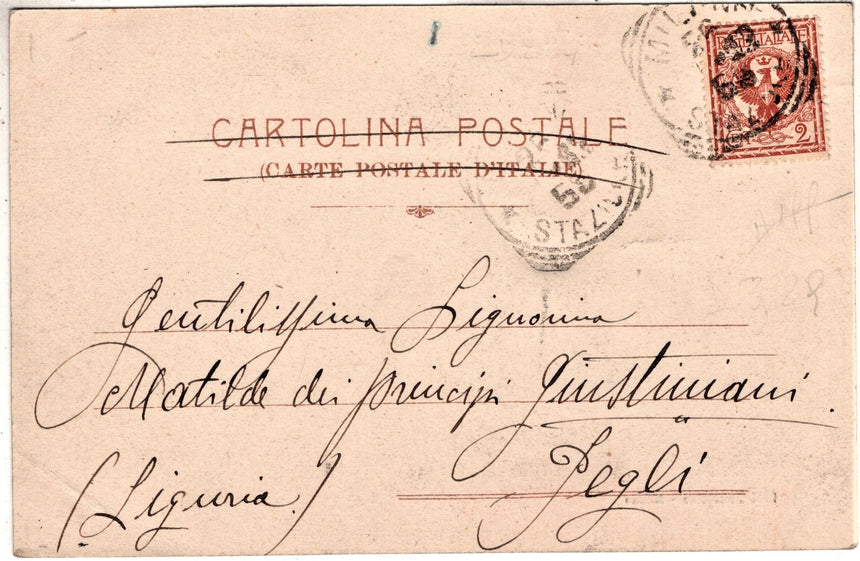 MILANO
POSTE ITALIANE
2
CARTOLINA POSTALE
(CARTE POSTALE D'ITALIE)
STAZIONE
Gentilissima Signorina
Matilde dei principi Giustiniani.
Pegli
(Liguria)